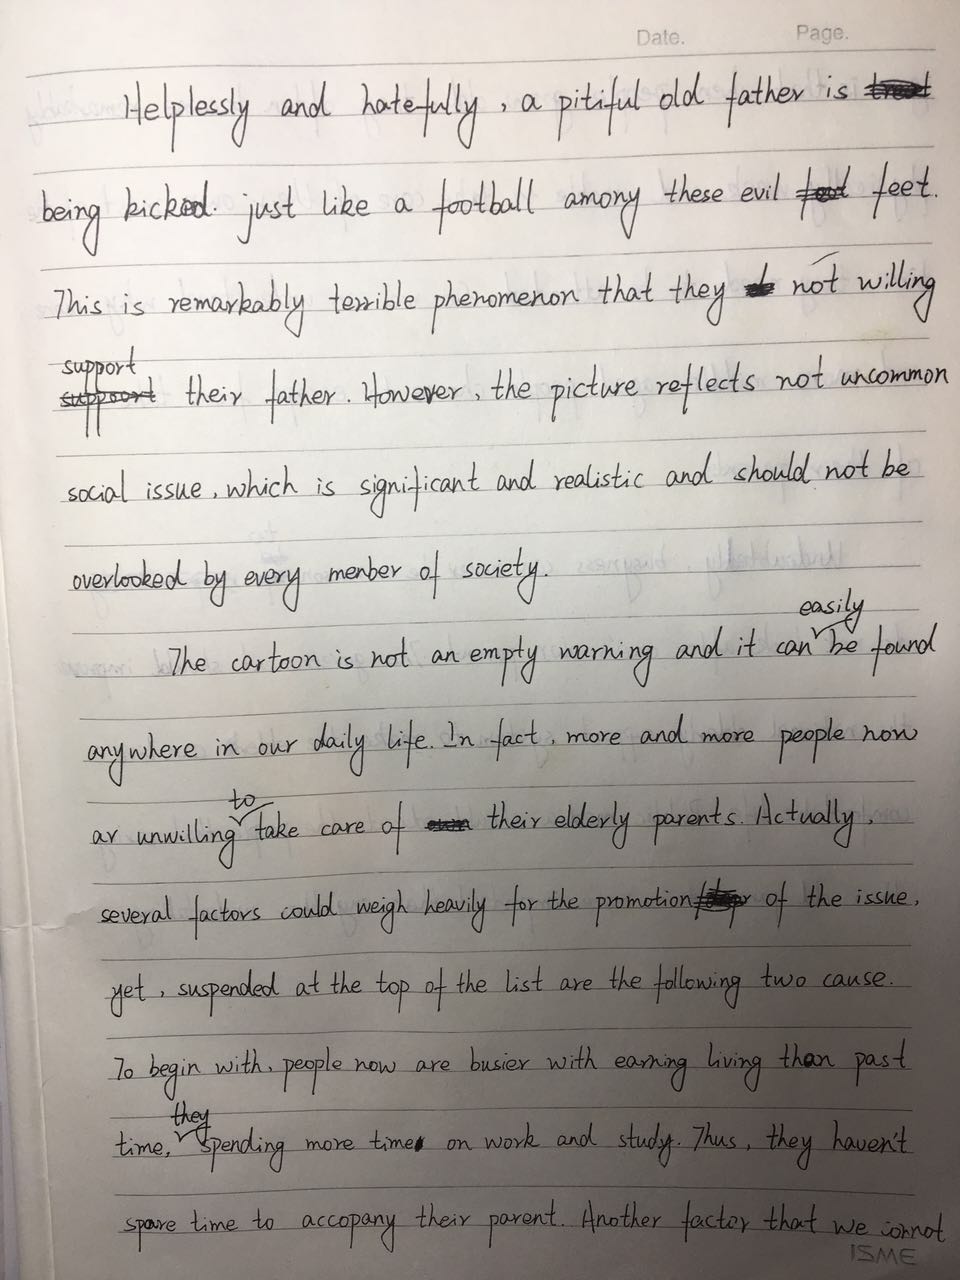 Date. Page.
Helplessly and hatefully, a pitiful old father is
being kicked. just like a football among these evil feet.
This is remarkably terrible phenomenon that they not willing
support
their father. However, the picture reflects not uncommon
social issue, which is significant and realistic and should not be
overlooked by every menber of society.
easily
The cartoon is not an empty warning and it can be found
anywhere in our daily life. In fact, more and more people now
to
ar unwilling take care of their elderly parents. Actually,
several factors could weigh heavily for the promotion of the issue,
yet, suspended at the top of the list are the following two cause.
To begin with, people now are busier with earning living than past
they
time, spending more time on work and study. Thus, they haven't
spare time to accopany their parent. Another factor that we connot
ISME